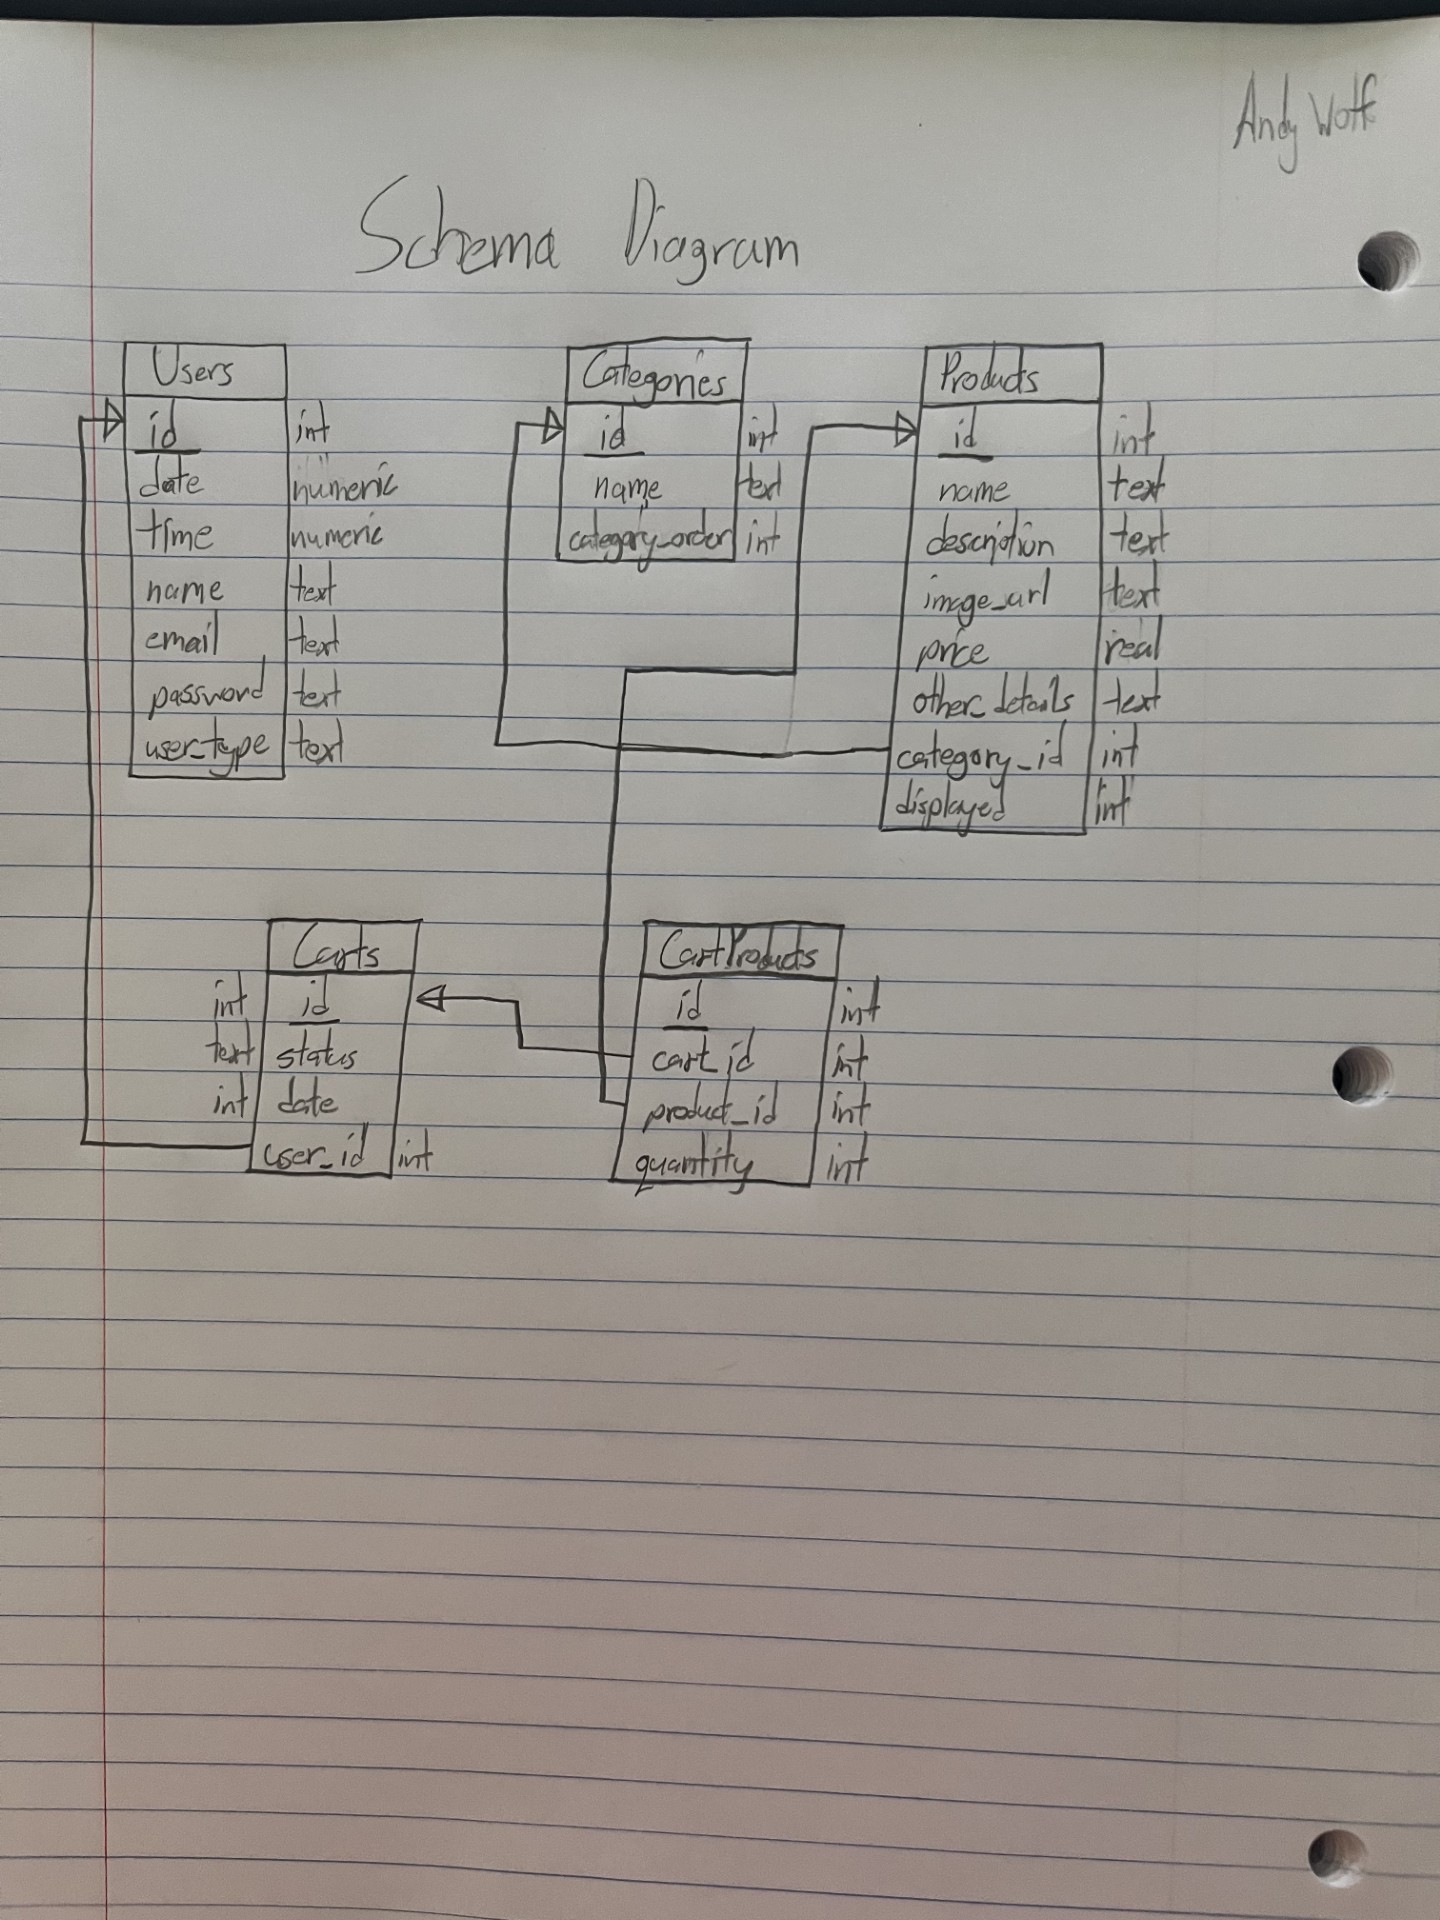 Andy Wolf
Schema Diagram
Users
id int
date numeric
time numeric
name text
email text
password text
user_type text
Categories
id int
name text
category_order int
Products
id int
name text
description text
image_url text
price real
other_details text
category_id int
displayed int
Carts
int id
text status
int date
user_id int
CartProducts
id int
cart_id int
product_id int
quantity int